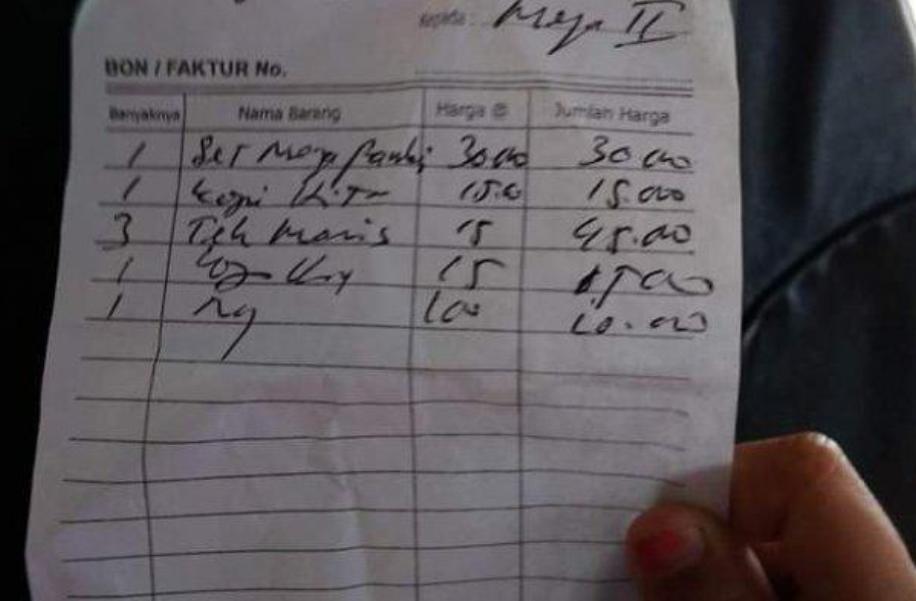 Kepada : Meja II
BON / FAKTUR No.
Banyaknya Nama Barang Harga @ Jumlah Harga
1 Set Meja Pantai 30000 30 000
1 Kopi 15.0 15.000
3 Teh Manis 15 45.00
1 15 15000
1 100 10.000